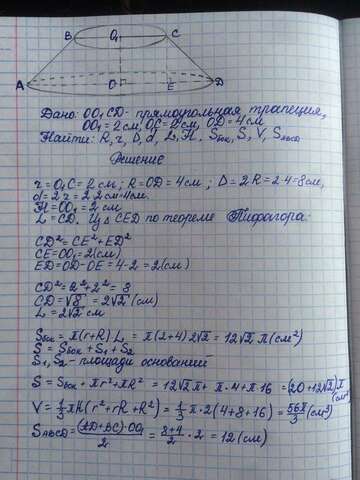 B O₁ C
A O E D
Дано: OO₁CD - прямоугольная трапеция,
OO₁ = 2 см, O₁C = 2 см, OD = 4 см
Найти: R, r, D, d, L, H, Sбок, S, V, SABCD
Решение
r = O₁C = 2 см; R = OD = 4 см; D = 2R = 2·4 = 8 см,
d = 2r = 2·2 см = 4 см.
H = OO₁ = 2 см
L = CD. Из △ CED по теореме Пифагора:
CD² = CE² + ED²
CE = OO₁ = 2 (см)
ED = OD - OE = 4 - 2 = 2 (см)
CD² = 2² + 2² = 8
CD = √8 = 2√2 (см)
L = 2√2 см
Sбок = π(r+R) L = π(2+4) 2√2 = 12√2 π (см²)
S = Sбок + S₁ + S₂
S₁, S₂ - площади оснований
S = Sбок + πr² + πR² = 12√2 π + π·4 + π·16 = (20+12√2)π (см²)
V = 1/3 πH (r² + rR + R²) = 1/3 π·2 (4+8+16) = 56π/3 (см³)
SABCD = (AD+BC)·OO₁/2 = 8+4/2 · 2 = 12 (см)